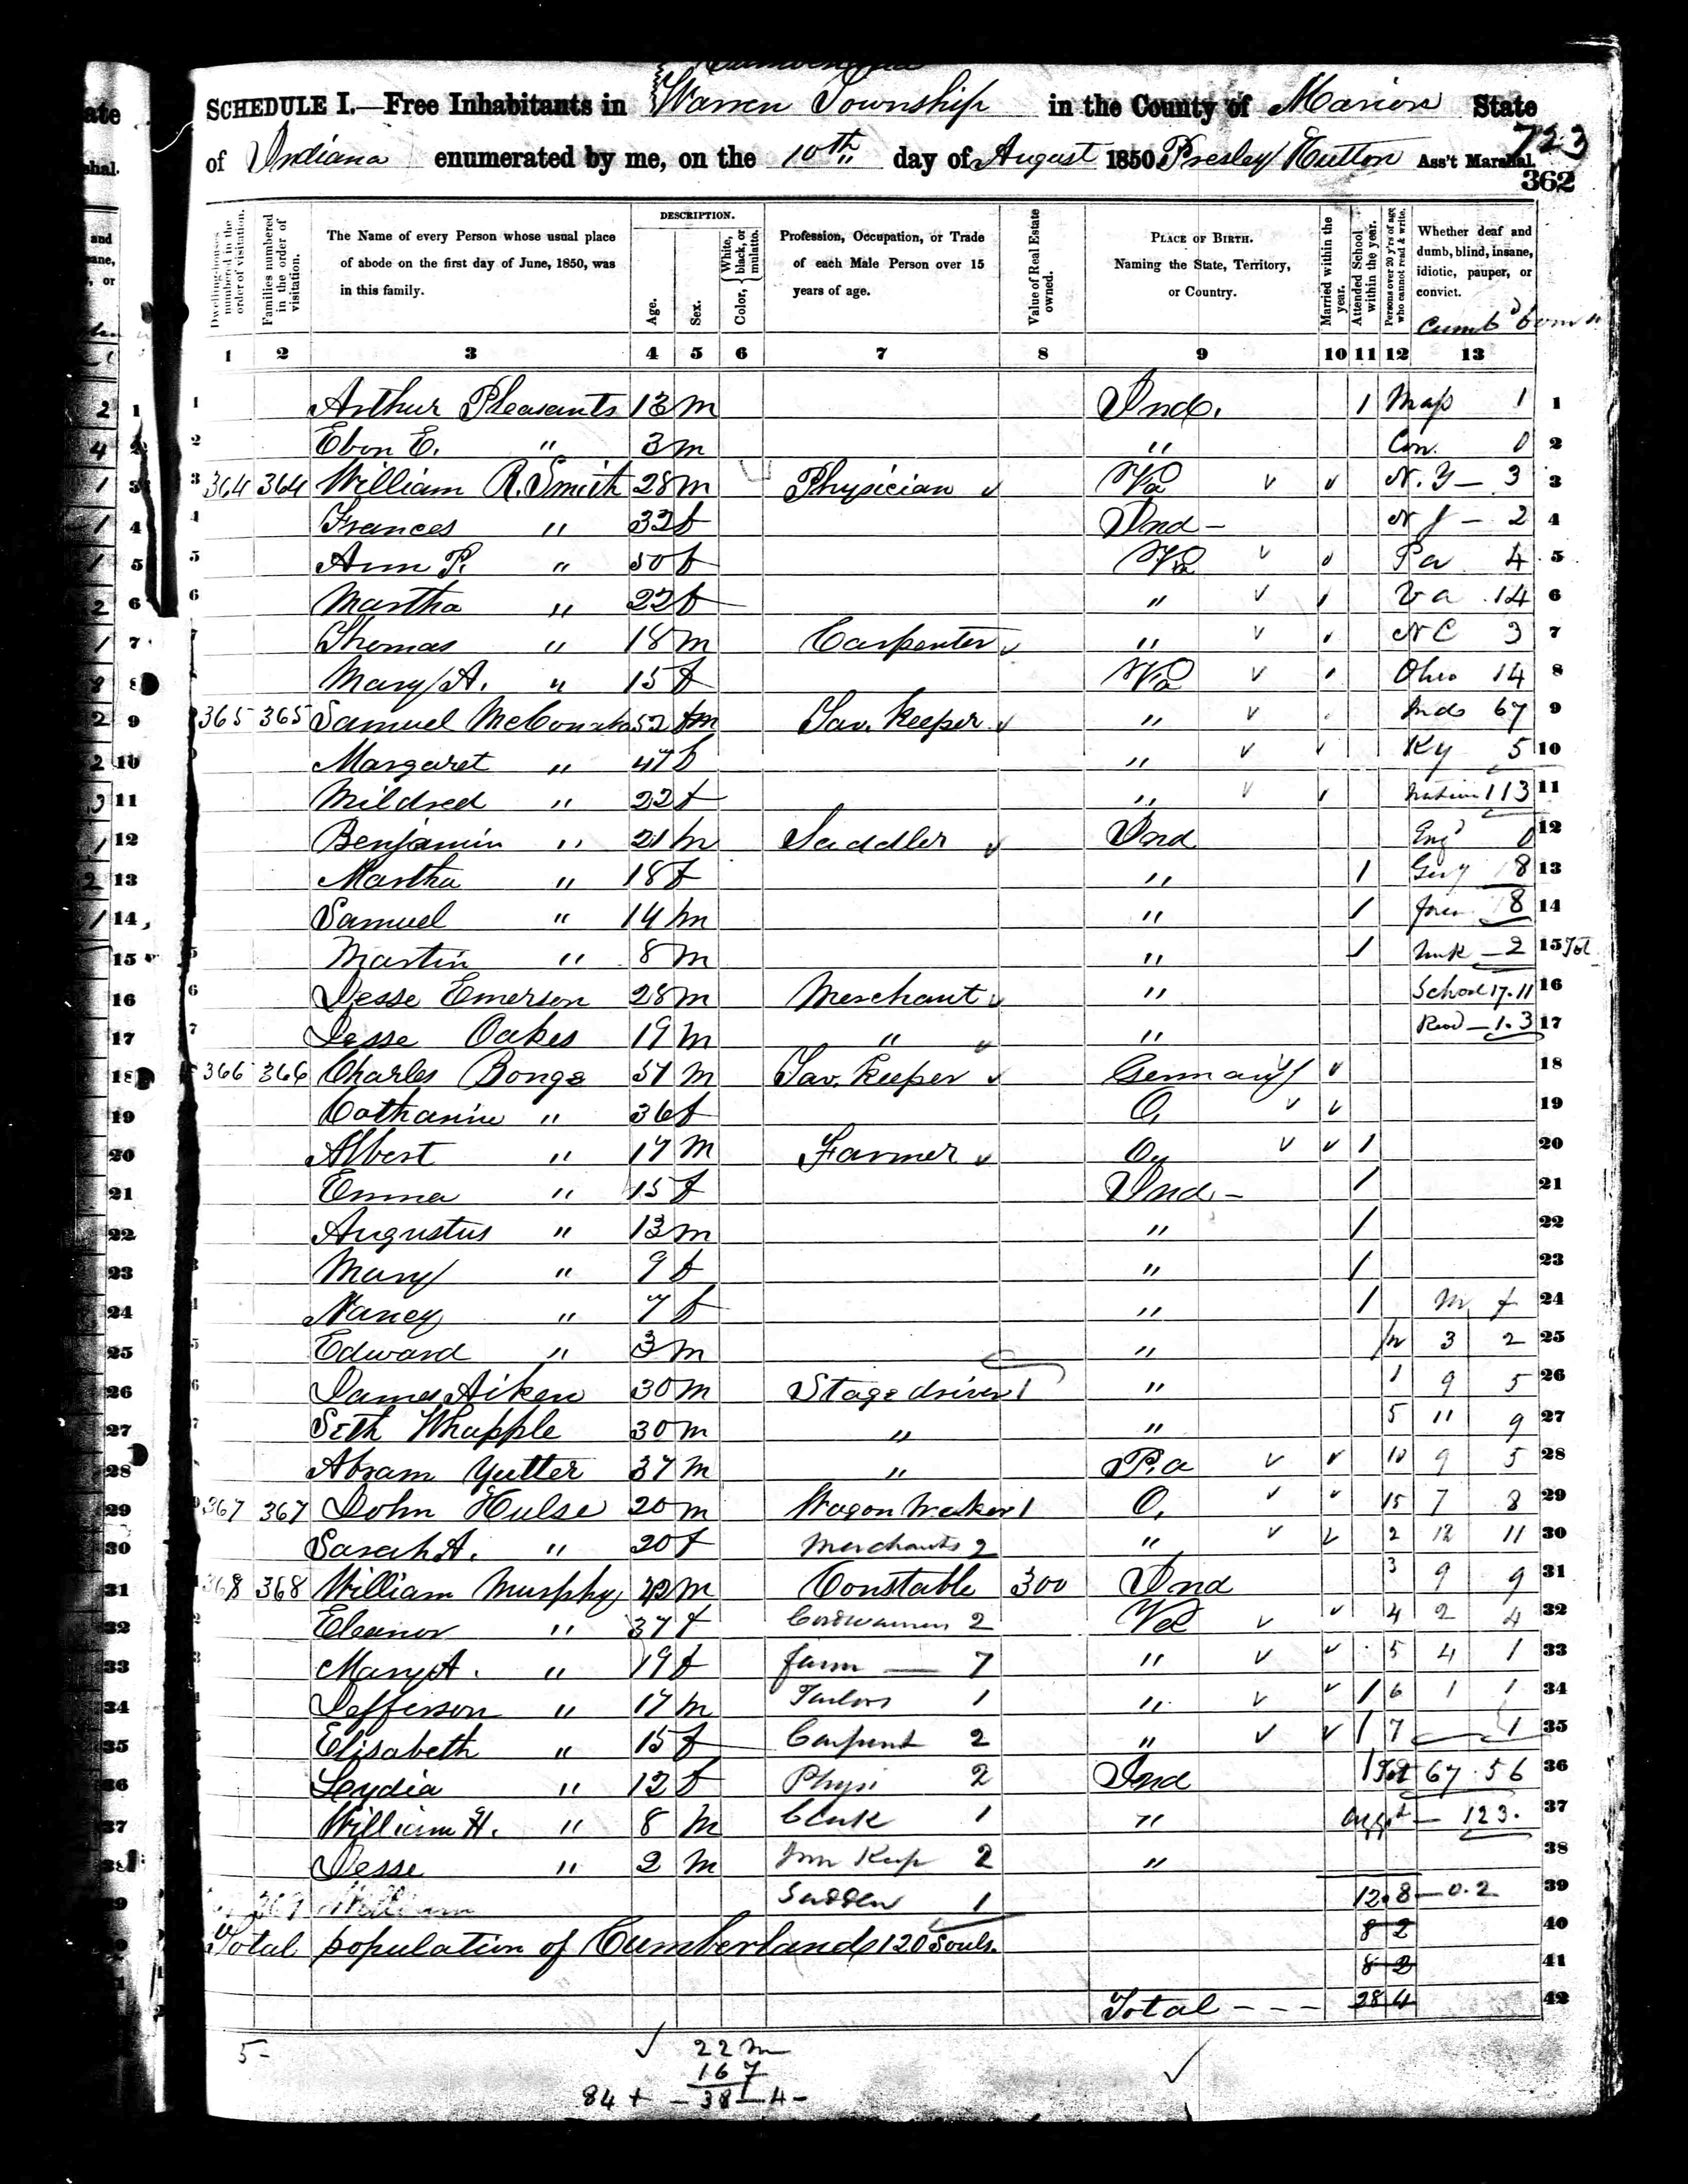 Cumberland
SCHEDULE I.—Free Inhabitants in Warren Township in the County of Marion State
of Indiana enumerated by me, on the 10th day of August 1850. Presley Hutton Ass't Marshal.
723
362
Dwelling-houses numbered in the order of visitation.
Families numbered in the order of visitation.
The Name of every Person whose usual place of abode on the first day of June, 1850, was in this family.
DESCRIPTION.
Age.
Sex.
Color, White, black, or mulatto.
Profession, Occupation, or Trade of each Male Person over 15 years of age.
Value of Real Estate owned.
PLACE OF BIRTH. Naming the State, Territory, or Country.
Married within the year.
Attended School within the year.
Persons over 20 y'rs of age who cannot read & write.
Whether deaf and dumb, blind, insane, idiotic, pauper, or convict.
1 2 3 4 5 6 7 8 9 10 11 12 13
1 Arthur Pleasants 13 m Ind. 1 Mas 1 1
2 Ebon E. " 3 m " Con. 0 2
3 364 364 William R. Smith 28 m Physician Va N.Y — 3 3
4 Frances " 32 f Ind - N J — 2 4
5 Ann P. " 50 f Va Pa 4 5
6 Martha " 22 f " Va 14 6
7 Thomas " 18 m Carpenter " NC 3 7
Mary A. " 15 f Va Ohio 14 8
365 365 Samuel 52 m Tav. Keeper " Ind 67 9
Margaret " 47 f " Ky 5 10
Mildred " 22 f " Native 113 11
Benjamin " 21 m Saddler Ind Eng 0 12
Martha " 18 f " 1 Gery 8 13
Samuel " 14 m " 1 fore 8 14
5 Martin " 8 m " 1 Unk — 2 15 Tot
6 Jesse Emerson 28 m Merchant " School 17.11 16
7 Jesse Oakes 19 m " " Read — 1.3 17
366 366 Charles Bonge 51 m Tav. Keeper Germany 18
Catharine " 36 f O. 19
Albert " 17 m Farmer O. 1 20
Emma " 15 f Ind - 1 21
Augustus " 13 m " 1 22
Mary " 9 f " 1 23
Nancy " 7 f " 1 m f 24
5 Edward " 3 m " 3 2 25
6 James Aiken 30 m Stage driver 1 " 1 9 5 26
7 Seth Whapple 30 m " " 5 11 9 27
Abram Yutter 37 m " Pa 10 9 5 28
367 367 John Hulse 20 m Wagon Maker 1 O. 15 7 8 29
Sarah A. " 20 f Merchants 2 " 2 12 11 30
368 368 William Murphy m Constable 300 Ind 3 9 9 31
Eleanor " 37 f Cordwainers 2 Va 4 2 4 32
Mary A. " 19 f farm — 7 " 5 4 1 33
Jefferson " 17 m Tailors 1 " 1 6 1 1 34
Elisabeth " 15 f Carpent 2 " 1 7 — 1 35
Lydia " 12 f Phys 2 Ind 1 Tot 67 . 56 36
William H. " 8 m Clerk 1 " aggt — 123. 37
Jesse " 2 m Inn Keep 2 " 38
369 William 1 12.8 — 0.2 39
Total population of Cumberland 120 Souls. 8 2 40
8 2 41
Total - - - 28 4 42
5- 22 m
16 7
84 + — 38 — 4 -